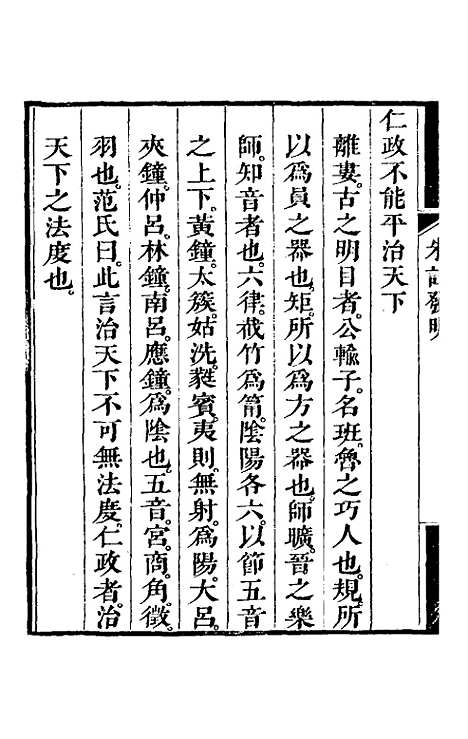 仁政不能平治天下
離婁。古之明目者。公輸子。名班。魯之巧人也。規。所
以爲員之器也。矩。所以爲方之器也。師曠。晉之樂
師。知音者也。六律。截竹爲筩。陰陽各六。以節五音
之上下。黃鐘。太簇。姑洗。蕤賓。夷則。無射。爲陽。大呂。
夾鐘。仲呂。林鐘。南呂。應鐘。爲陰也。五音。宮。商。角。徵。
羽也。范氏曰。此言治天下不可無法度。仁政者。治
天下之法度也。